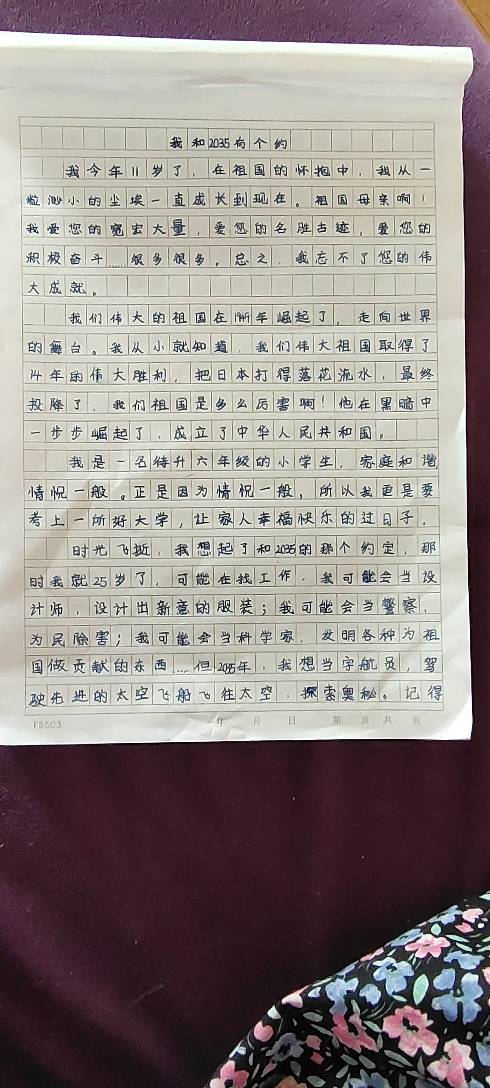 我和2035有个约
我今年11岁了，在祖国的怀抱中，我从一
粒渺小的尘埃一直成长到现在。祖国母亲啊！
我爱您的宽宏大量，爱您的名胜古迹，爱您的
积极奋斗……很多很多。总之，我忘不了您的伟
大成就。
我们伟大的祖国在1949年崛起了，走向世界
的舞台。我从小就知道，我们伟大祖国取得了
14年的伟大胜利，把日本打得落花流水，最终
投降了。我们祖国是多么厉害啊！他在黑暗中
一步步崛起了，成立了中华人民共和国。
我是一名待升六年级的小学生，家庭和谐
情况一般。正是因为情况一般，所以我更是要
考上一所好大学，让家人幸福快乐的过日子。
时光飞逝，我想起了和2035的那个约定，那
时我就25岁了，可能在找工作。我可能会当设
计师，设计出新意的服装；我可能会当警察，
为民除害；我可能会当科学家，发明各种为祖
国做贡献的东西……但2035年，我想当宇航员，驾
驶先进的太空飞船飞往太空，探索奥秘。记得
F8503 年 月 日 第 页 共 页